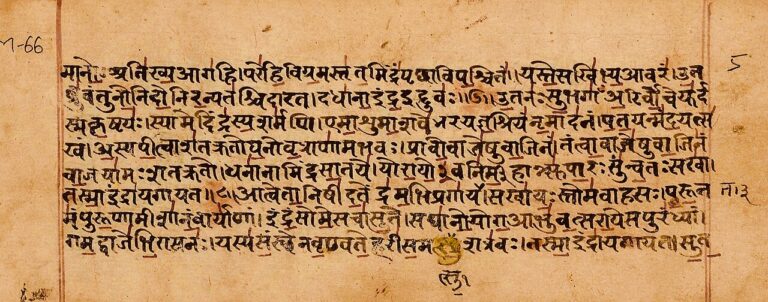 m-66
मानो अतिख्यआगहि। परेहिविग्रमस्तृतमिंद्रंपृच्छाविपश्चितं। यस्तेसखिभ्यआवरं। उत 5
ब्रुवंतुनोनिदोनिरन्यतश्चिदारत। दधानाइंद्रइद्दुवः॥७॥ उतनःसुभगाँअरिर्वोचेयुर्द
स्मकृष्टयः। स्यामेदिंद्रस्यशर्मणि। एमाशुमाशवेभरयज्ञश्रियंनृमादनं। पतयन्मंदयत्स
खं। अस्यपीत्वाशतक्रतोघनोवृत्राणामभवः। प्रावोवाजेषुवाजिनं। तंत्वावाजेषुवाजिनं
वाजयामःशतक्रतो। धनानामिंद्रसातये। योरायो३वनिर्महान्त्सुपारःसुन्वतःसखा।
तस्माइंद्रायगायत॥८॥ आत्वेतानिषीदतेंद्रमभिप्रगायत। सखायःस्तोमवाहसः। पुरूत
मंपुरूणामीशानंवार्याणां। इंद्रंसोमेसचासुते। सघानोयोगआभुवत्सरायेसपुरंध्यां।
गमद्वाजेभिरासनः। यस्यसंस्थेनवृण्वतेहरीसमत्सुशत्रवः। तस्माइंद्रायगायत। सुत